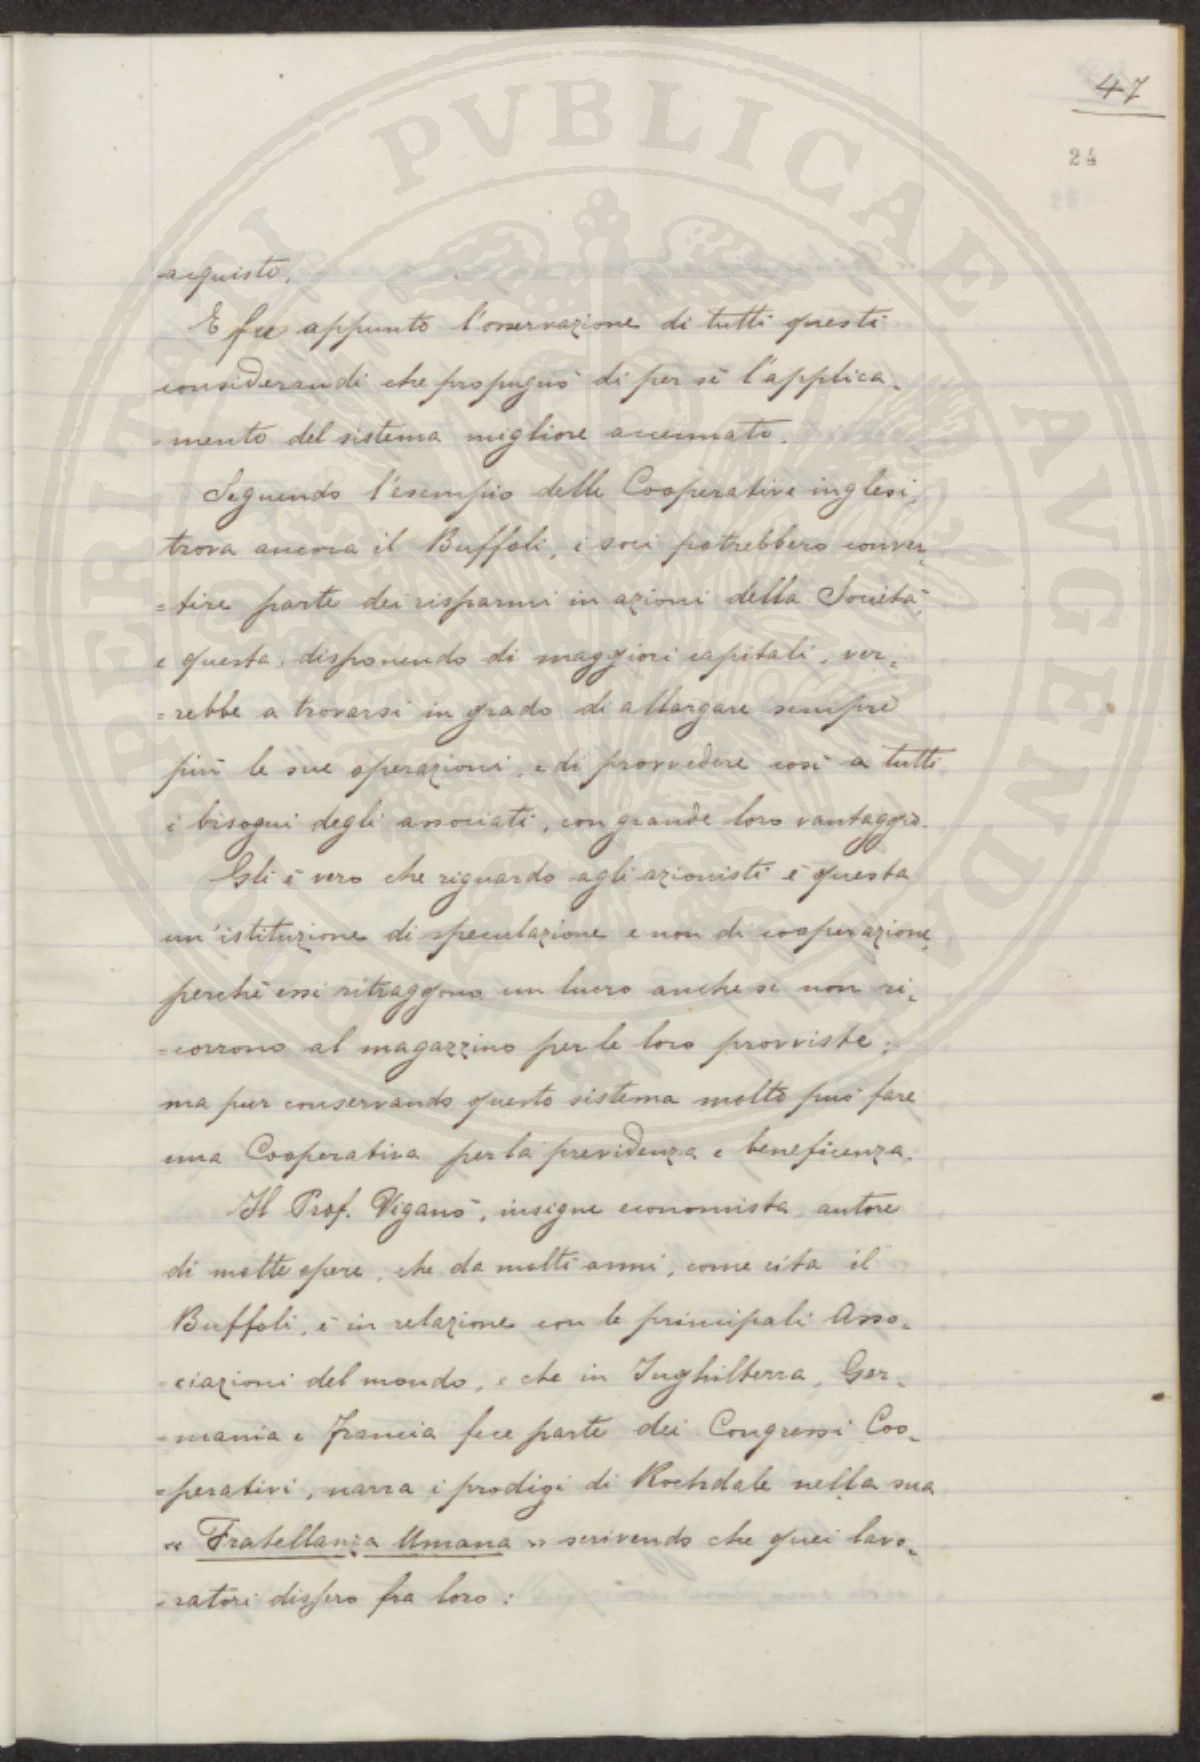 47
24
25
PUBLICAE AUGENDAE PROSPERITATI
acquisto.
E fu appunto l'osservazione di tutti questi
considerandi che propugnò di per sè l'applica-
-mento del sistema migliore accennato.
Seguendo l'esempio delle Cooperative inglesi,
trova ancora il Buffoli, i soci potrebbero conver-
=tire parte dei risparmi in azioni della Società,
e questa, disponendo di maggiori capitali, ver-
=rebbe a trovarsi in grado di allargare sempre
più le sue operazioni, e di provvedere così a tutti
i bisogni degli associati, con grande loro vantaggio.
Gli è vero che riguardo agli azionisti è questa
un'istituzione di speculazione e non di cooperazione,
perchè essi ritraggono un lucro anche se non ri-
=corrono al magazzino per le loro provviste;
ma pur conservando questo sistema molto può fare
una Cooperativa per la previdenza e beneficenza.
Il Prof. Viganò, insigne economista, autore
di molte opere, che da molti anni, come cita il
Buffoli, è in relazione con le principali Asso-
-ciazioni del mondo, e che in Inghilterra, Ger-
-mania e Francia fece parte dei Congressi Coo-
-perativi, narra i prodigi di Rochdale nella sua
« Fratellanza Umana » scrivendo che quei lavo-
-ratori dissero fra loro: